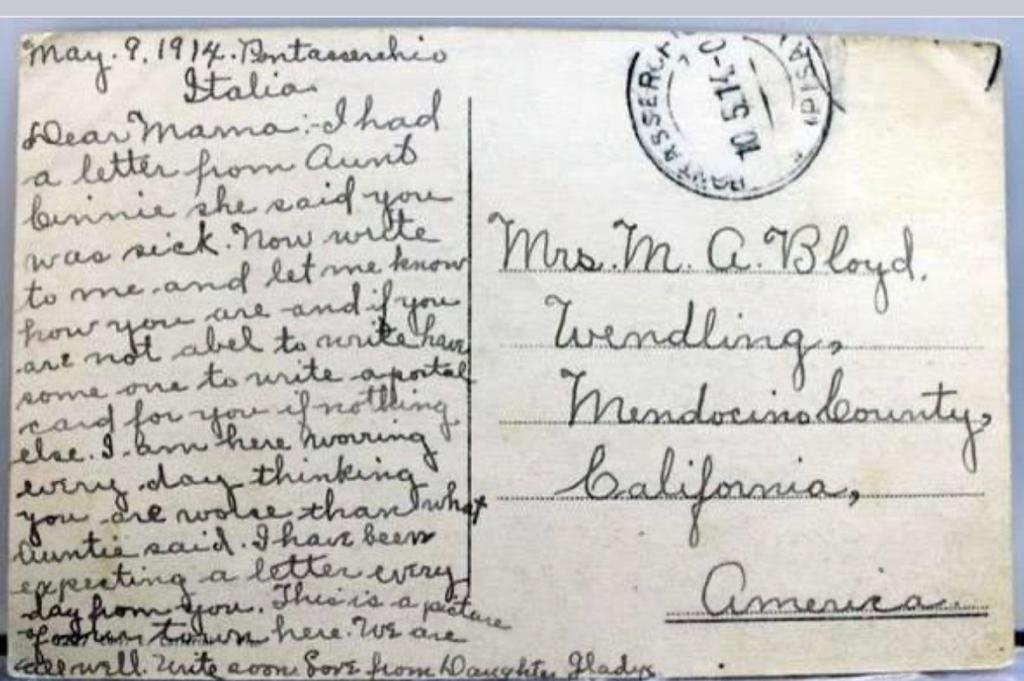 May. 9. 1914. Pontasserchio
Italia.
Dear Mama:- I had
a letter from Aunt
Cinnie she said you
was sick. Now write
to me and let me know
how you are and if you
are not abel to write have
some one to write a postal
card for you if nothing
else. I am here worring
every day thinking
you are worse than what
Auntie said. I have been
expecting a letter every
day from you. This is a picture
of our town here. We are
all well. Write soon Love from Daughter Gladys
PONTASSERCH
PISA
10 5.14
Mrs. M. A. Bloyd.
Wendling,
Mendocino County,
California,
America.